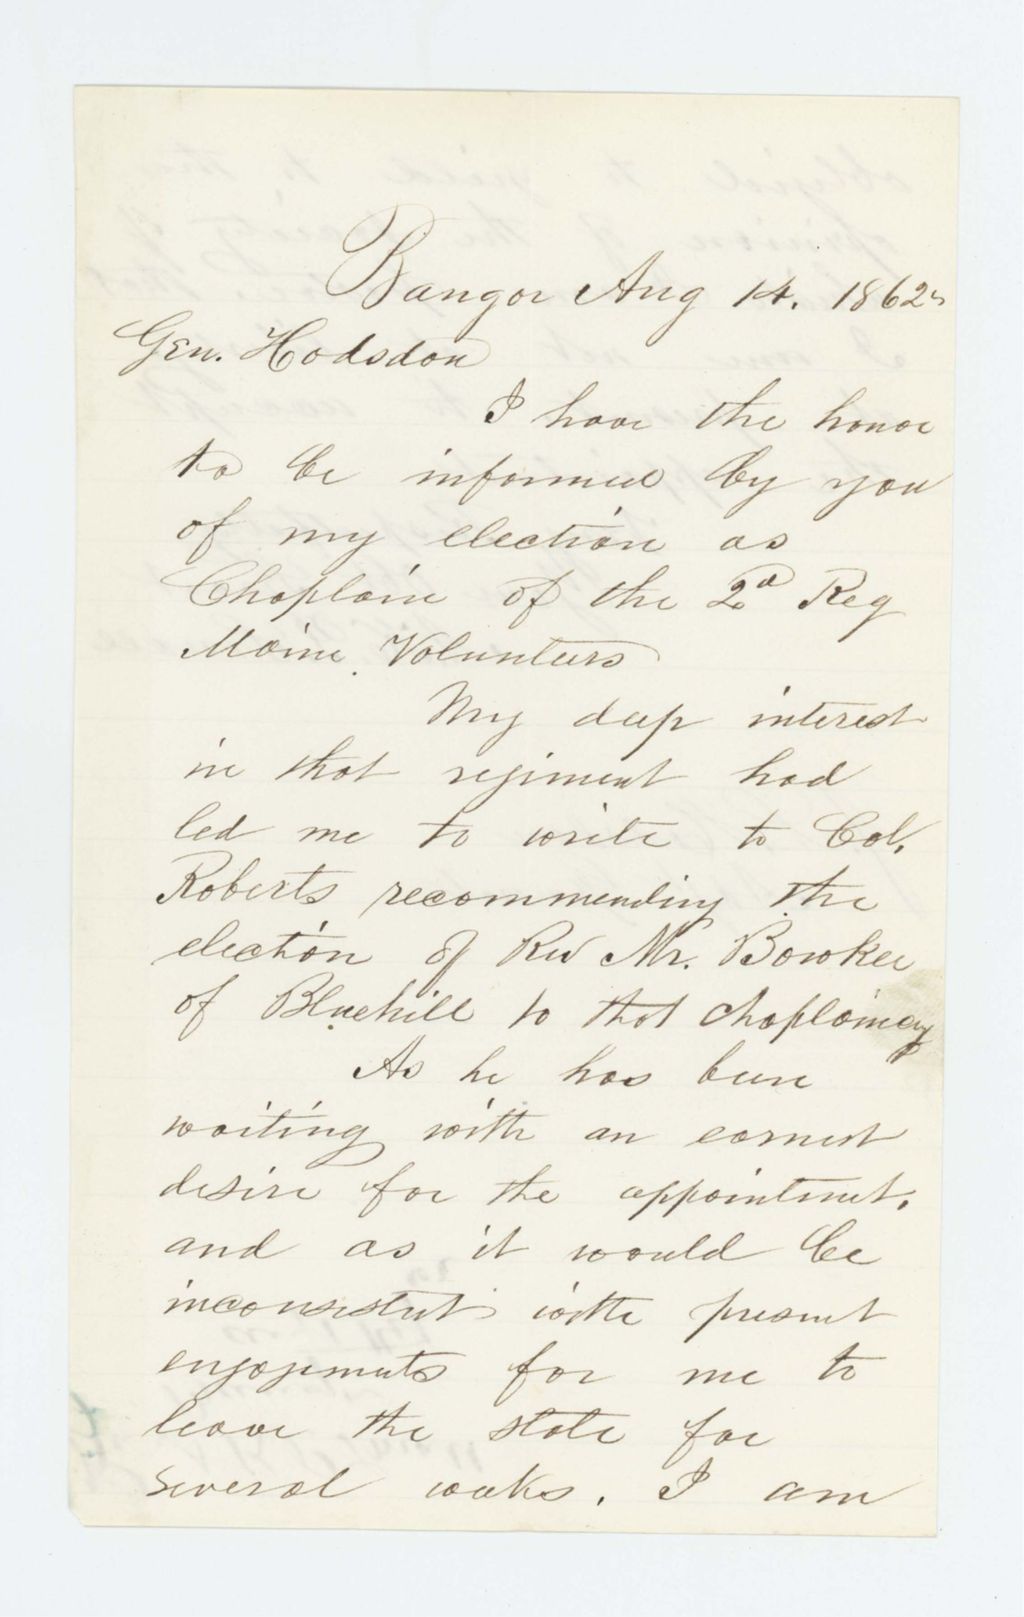 Bangor Aug 14. 1862
Gen. Hodsdon
I have the honor
to be informed by you
of my election as
Chaplain of the 2d Reg
Maine Volunteers
My deep interest
in that regiment had
led me to write to Col.
Roberts recommending the
election of Rev Mr. Bowker
of Bluehill to that chaplaincy
As he has been
waiting with an earnest
desire for the appointment.
and as it would be
inconsistent with present
engagements for me to
leave the state for
several weeks. I am